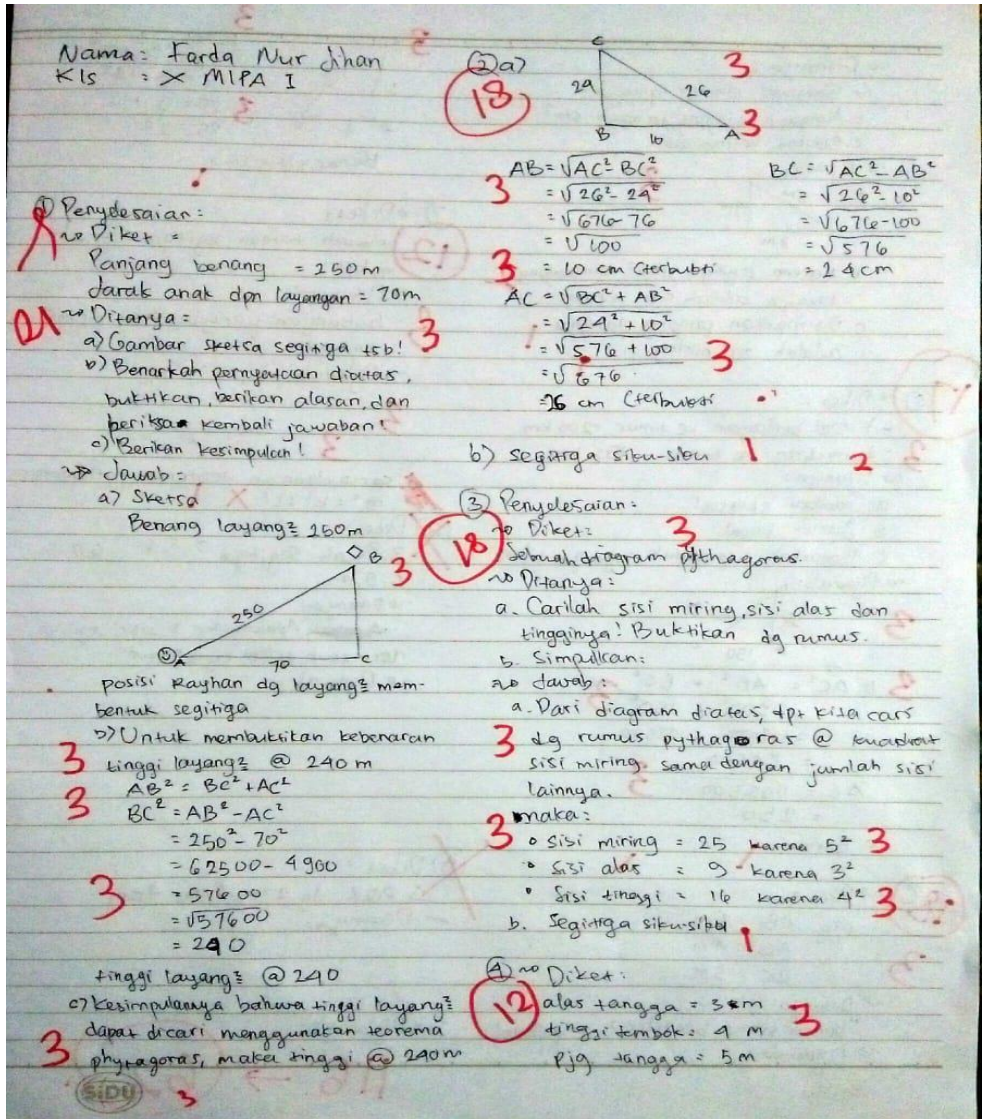 Nama: Farda Nur Jihan
Kls : X MIPA I
① Penyelesaian:
Diket =
Panjang benang = 250 m
Jarak anak dpn layangan = 70m
21
Ditanya =
a) Gambar sketsa segitiga tsb!
3
b) Benarkah pernyataan diatas,
buktikan, berikan alasan, dan
periksa kembali jawaban!
c) Berikan kesimpulan!
Jawab =
a) Sketsa
Benang layang² 250m
B
3
250
A
70
C
posisi Rayhan dg layang² mem-
bentuk segitiga
b) Untuk membuktikan kebenaran
3 tinggi layang² @ 240 m
3 AB² = BC² + AC²
BC² = AB² - AC²
= 250² - 70²
= 62500 - 4900
3 = 57600
= √57600
= 240
tinggi layang² @ 240
c) Kesimpulannya bahwa tinggi layang²
dapat dicari menggunakan teorema
3 phytagoras, maka tinggi @ 240m
SIDU
3
② a)
18
C
3
24
26
B
10
A
3
AB = √AC² - BC²
3 = √26² - 24²
= √676 - 76
= √100
3 = 10 cm (terbukti
BC = √AC² - AB²
= √26² - 10²
= √676 - 100
= √576
= 24cm
AC = √BC² + AB²
= √24² + 10²
= √576 + 100
3
= √676
= 26 cm (terbukti
b) segitiga siku-siku 1
2
③ Penyelesaian:
18
Diket:
3
Sebuah diagram pythagoras.
Ditanya:
a. Carilah sisi miring, sisi alas dan
tingginya! Buktikan dg rumus.
b. Simpulkan:
Jawab:
a. Dari diagram diatas, dpt kita cari
3 dg rumus pythagoras @ kuadrat
sisi miring sama dengan jumlah sisi
lainnya.
maka:
3 • sisi miring = 25 karena 5² 3
• sisi alas = 9 karena 3²
• Sisi tinggi = 16 karena 4² 3
b. Segitiga siku-siku 1
④ Diket:
12
alas tangga = 3 m
tinggi tembok: 4 m
3
Pjg tangga = 5 m